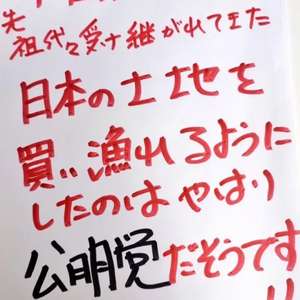 先
祖代々受け継がれてきた
日本の土地を
買い漁れるように
したのはやはり
公明党だそうです
!!